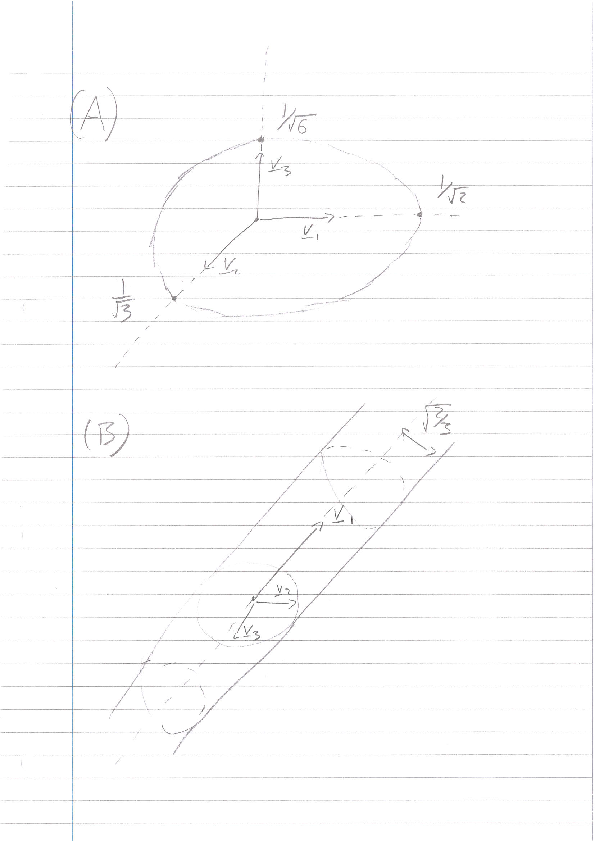 (A)
1/√6
v₃
1/√2
v₁
1/√3
(B)
√2/3
v₁
v₂
v₃